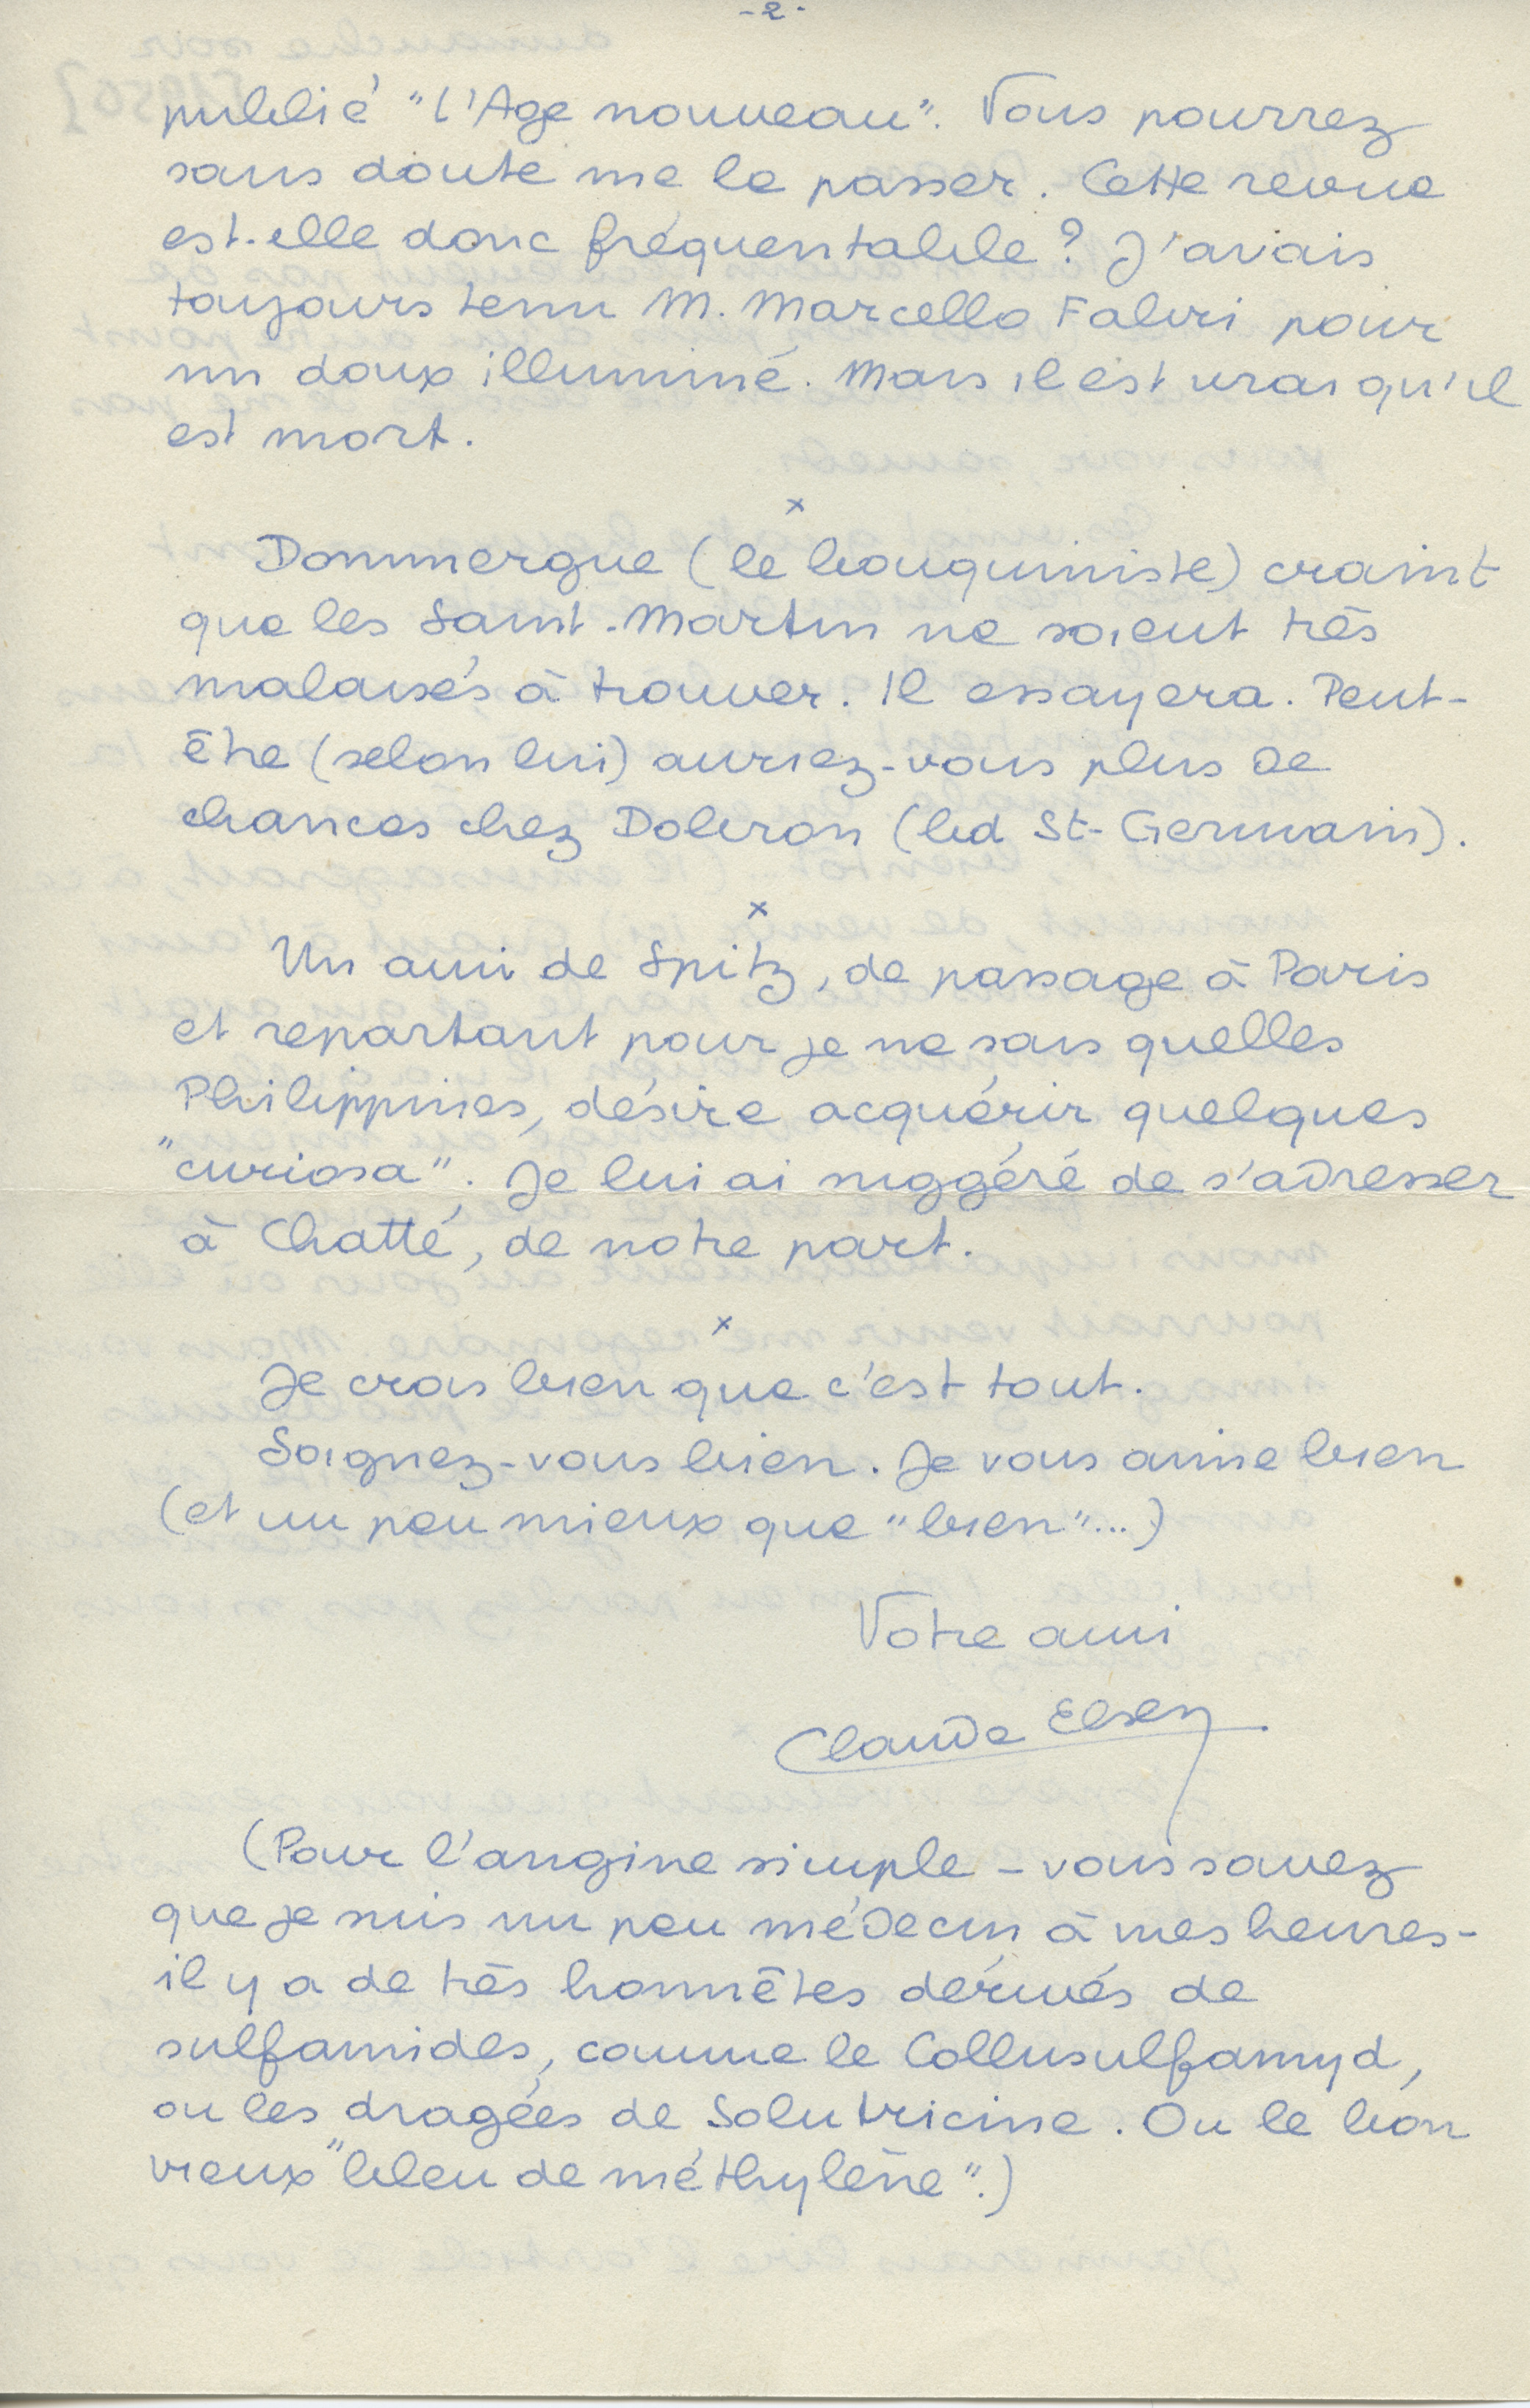 - 2 -
publié "l'Age nouveau". Vous pourrez
sans doute me le passer. Cette revue
est-elle donc fréquentable ? J'avais
toujours tenu M. Marcello Fabri pour
un doux illuminé. Mais il est vrai qu'il
est mort.
x
Dommergue (le bouquiniste) craint
que les Saint-Martin ne soient très
malaisés à trouver. Il essayera. Peut-
être (selon lui) auriez-vous plus de
chances chez Dobron (bd St-Germain).
x
Un ami de Spitz, de passage à Paris
et repartant pour je ne sais quelles
Philippines, désire acquérir quelques
"curiosa". Je lui ai suggéré de s'adresser
à Chatté, de notre part.
x
Je crois bien que c'est tout.
Soignez-vous bien. Je vous aime bien
(et un peu mieux que "bien"...)
Votre ami
Claude Elsen
(Pour l'angine simple - vous savez
que je suis un peu médecin à mes heures -
il y a de très honnêtes dérivés de
sulfamides, comme le Collusulfamyd,
ou les dragées de Solutricine. Ou le bon
vieux "bleu de méthylène".)